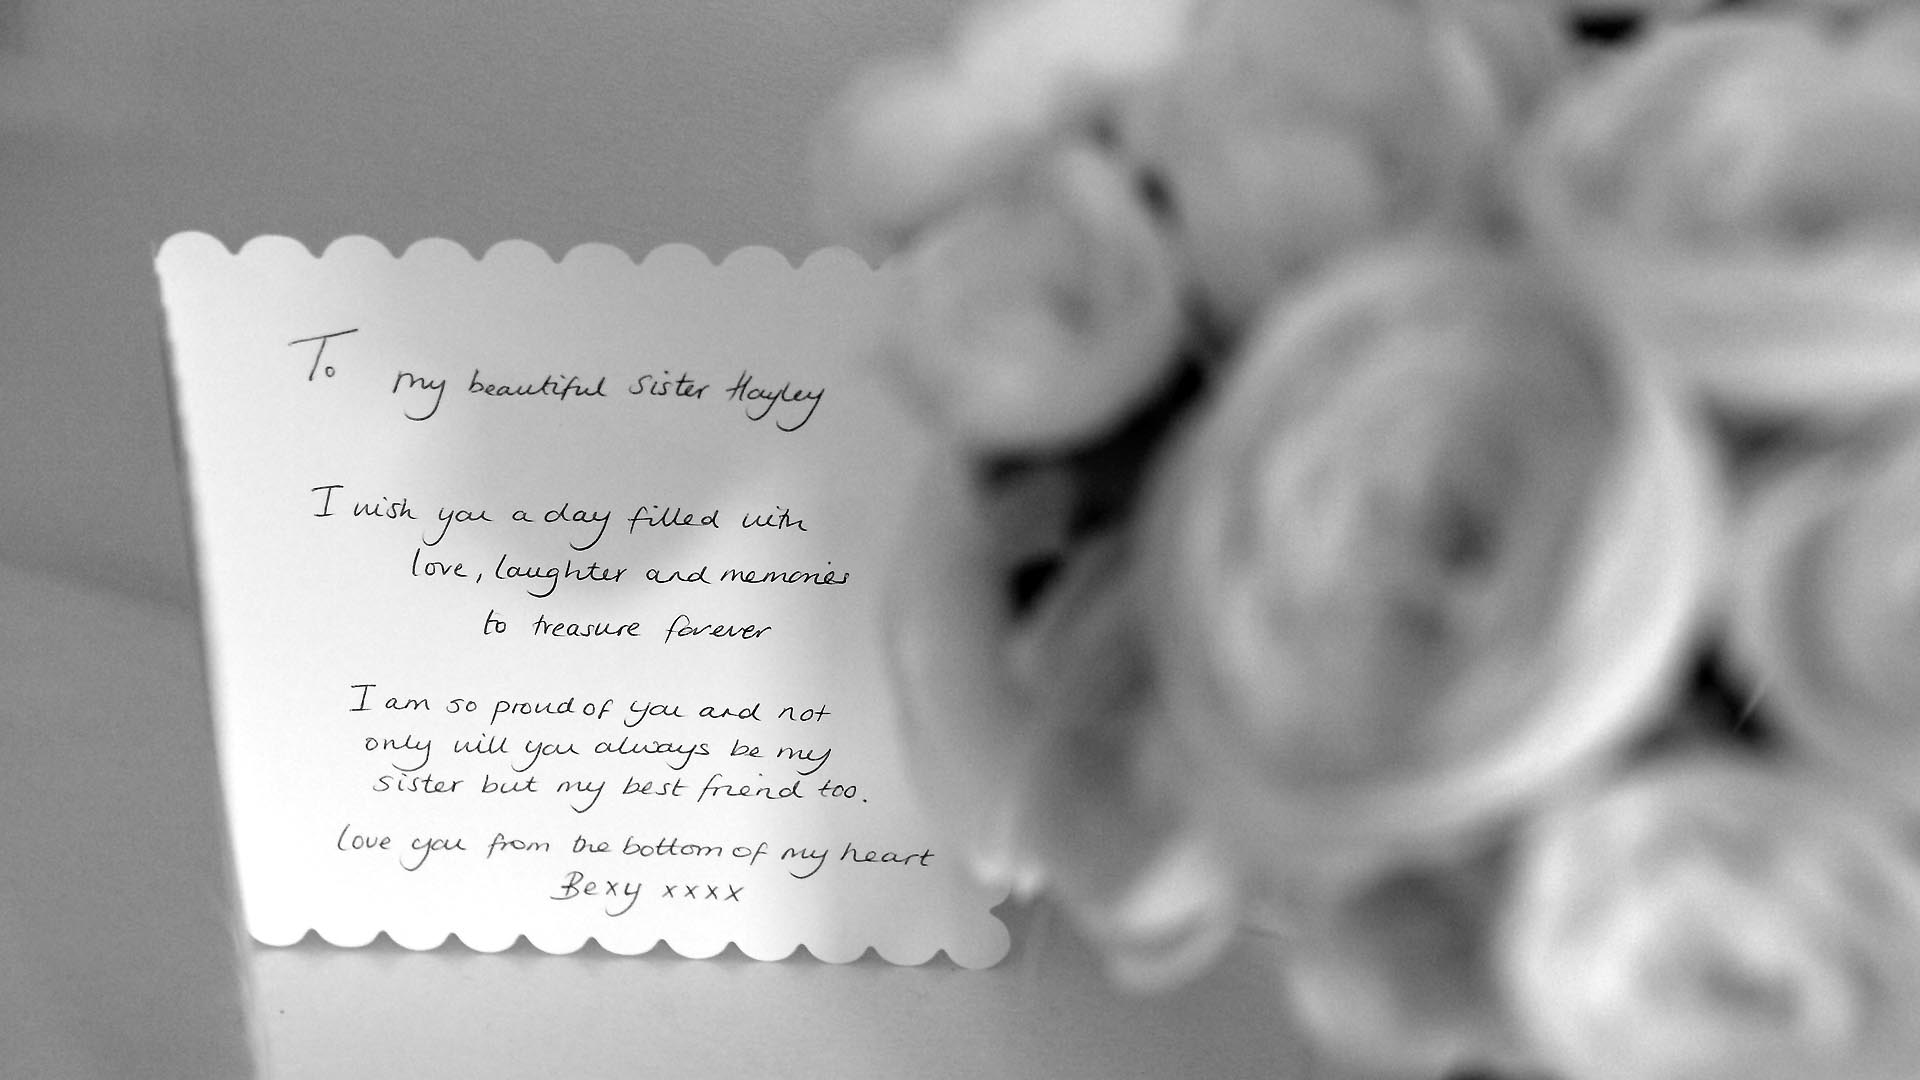 To my beautiful sister Hayley
I wish you a day filled with
love, laughter and memories
to treasure forever
I am so proud of you and not
only will you always be my
sister but my best friend too.
love you from the bottom of my heart
Bexy xxxx